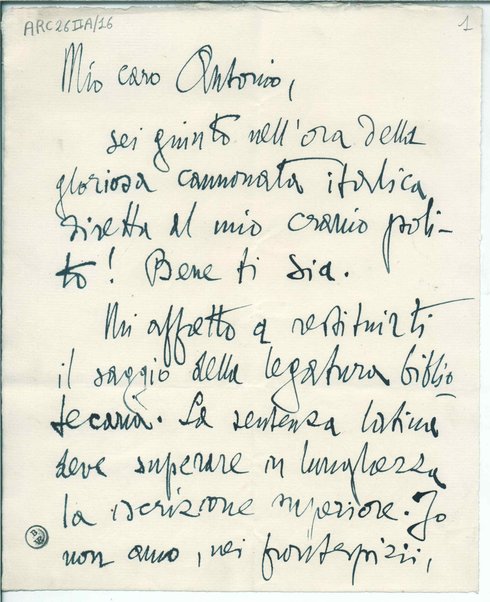 ARC26IIA/16
1
Mio caro Antonio,
sei giunto nell'ora della
gloriosa cannonata italica
diretta al mio cranio poli-
to! Bene ti sia.
Mi affretto a restituirti
il saggio della legatura biblio-
tecaria. La sentenza latina
deve superare in lunghezza
la iscrizione superiore. Io
non amo, nei frontespizii,